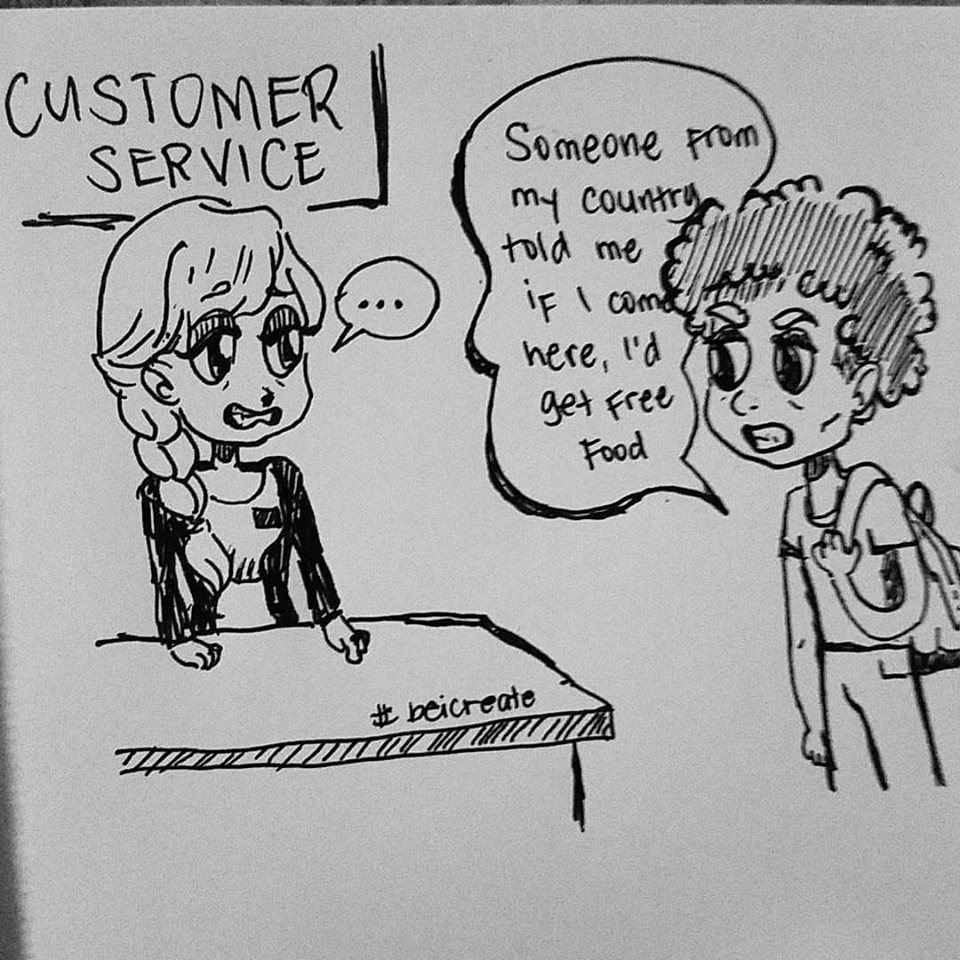 CUSTOMER
SERVICE
...
Someone From
my country
told me
if I come
here, I'd
get Free
Food
# beicreate